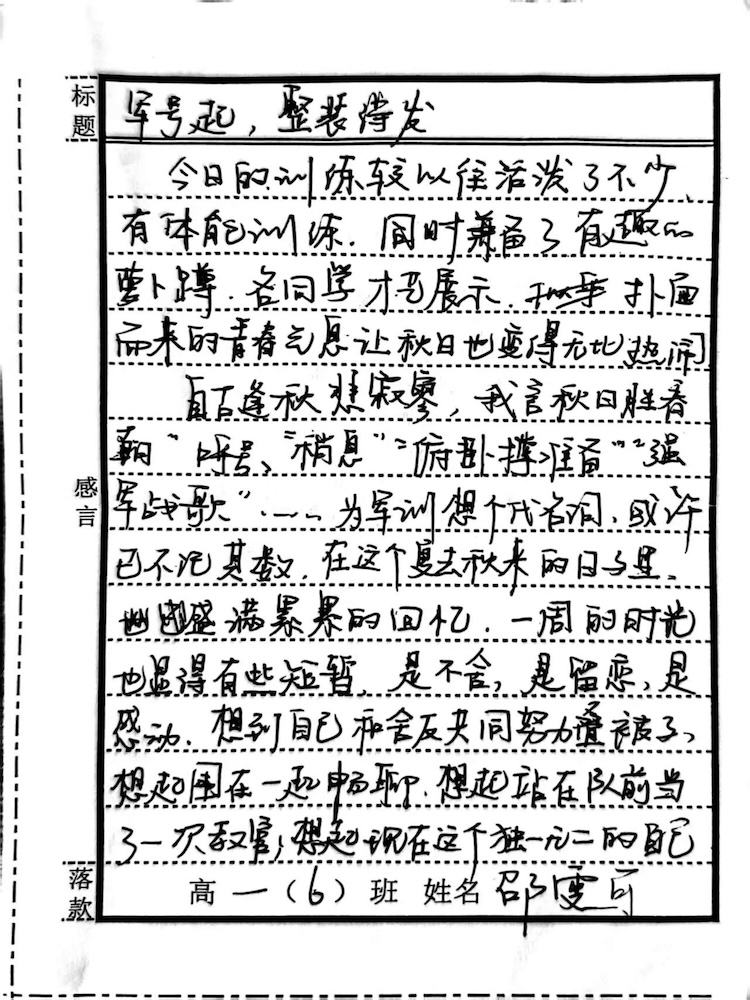 标题
军号起，整装待发
感言
今日的训练较以往活泼了不少、
有体能训练．同时兼备了有趣的
萝卜蹲．各同学才艺展示． 扑面
而来的青春气息让秋日也变得无比热闹
自古逢秋悲寂寥，我言秋日胜春
朝“口号、”“稍息”“俯卧撑准备”“强
军战歌”……为军训想个代名词，或许
已不记其数．在这个夏去秋来的日子里、
盛满累累的回忆．一周的时光
也显得有些短暂．是不舍，是留恋，是
感动．想到自己和舍友共同努力叠被子、
想起围在一起畅聊．想起站在队前当
了一次教官；想起现在这个独一无二的自己
落款
高一（6）班 姓名 邵雯可